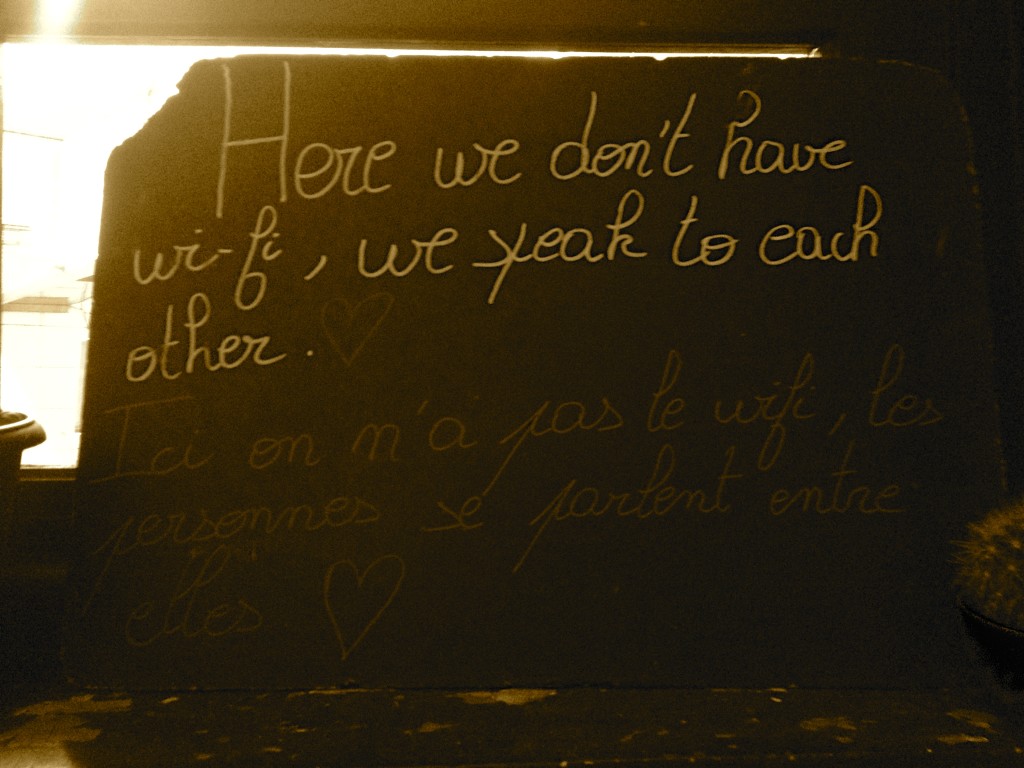 Here we don't have
wi-fi, we speak to each
other.
Ici on n'a pas le wifi, les
personnes se parlent entre
elles